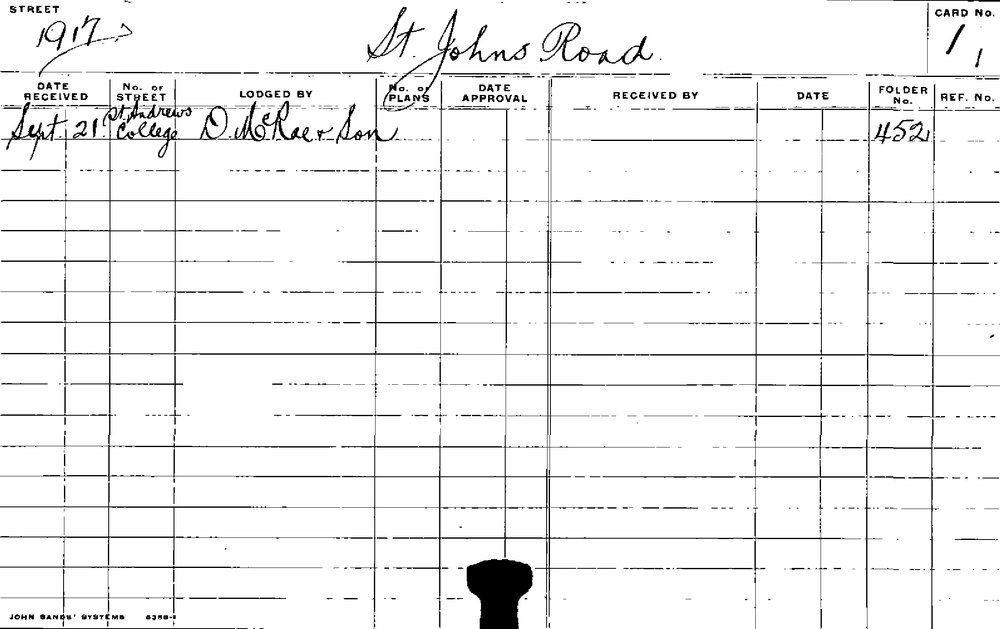 STREET
1917
St. Johns Road.
CARD No.
1/1
DATE RECEIVED
No. of STREET
LODGED BY
No. of PLANS
DATE APPROVAL
RECEIVED BY
DATE
FOLDER No.
REF. No.
Sept 21 St. Andrews College D. McRae & Son 452
JOHN SANDS' SYSTEMS